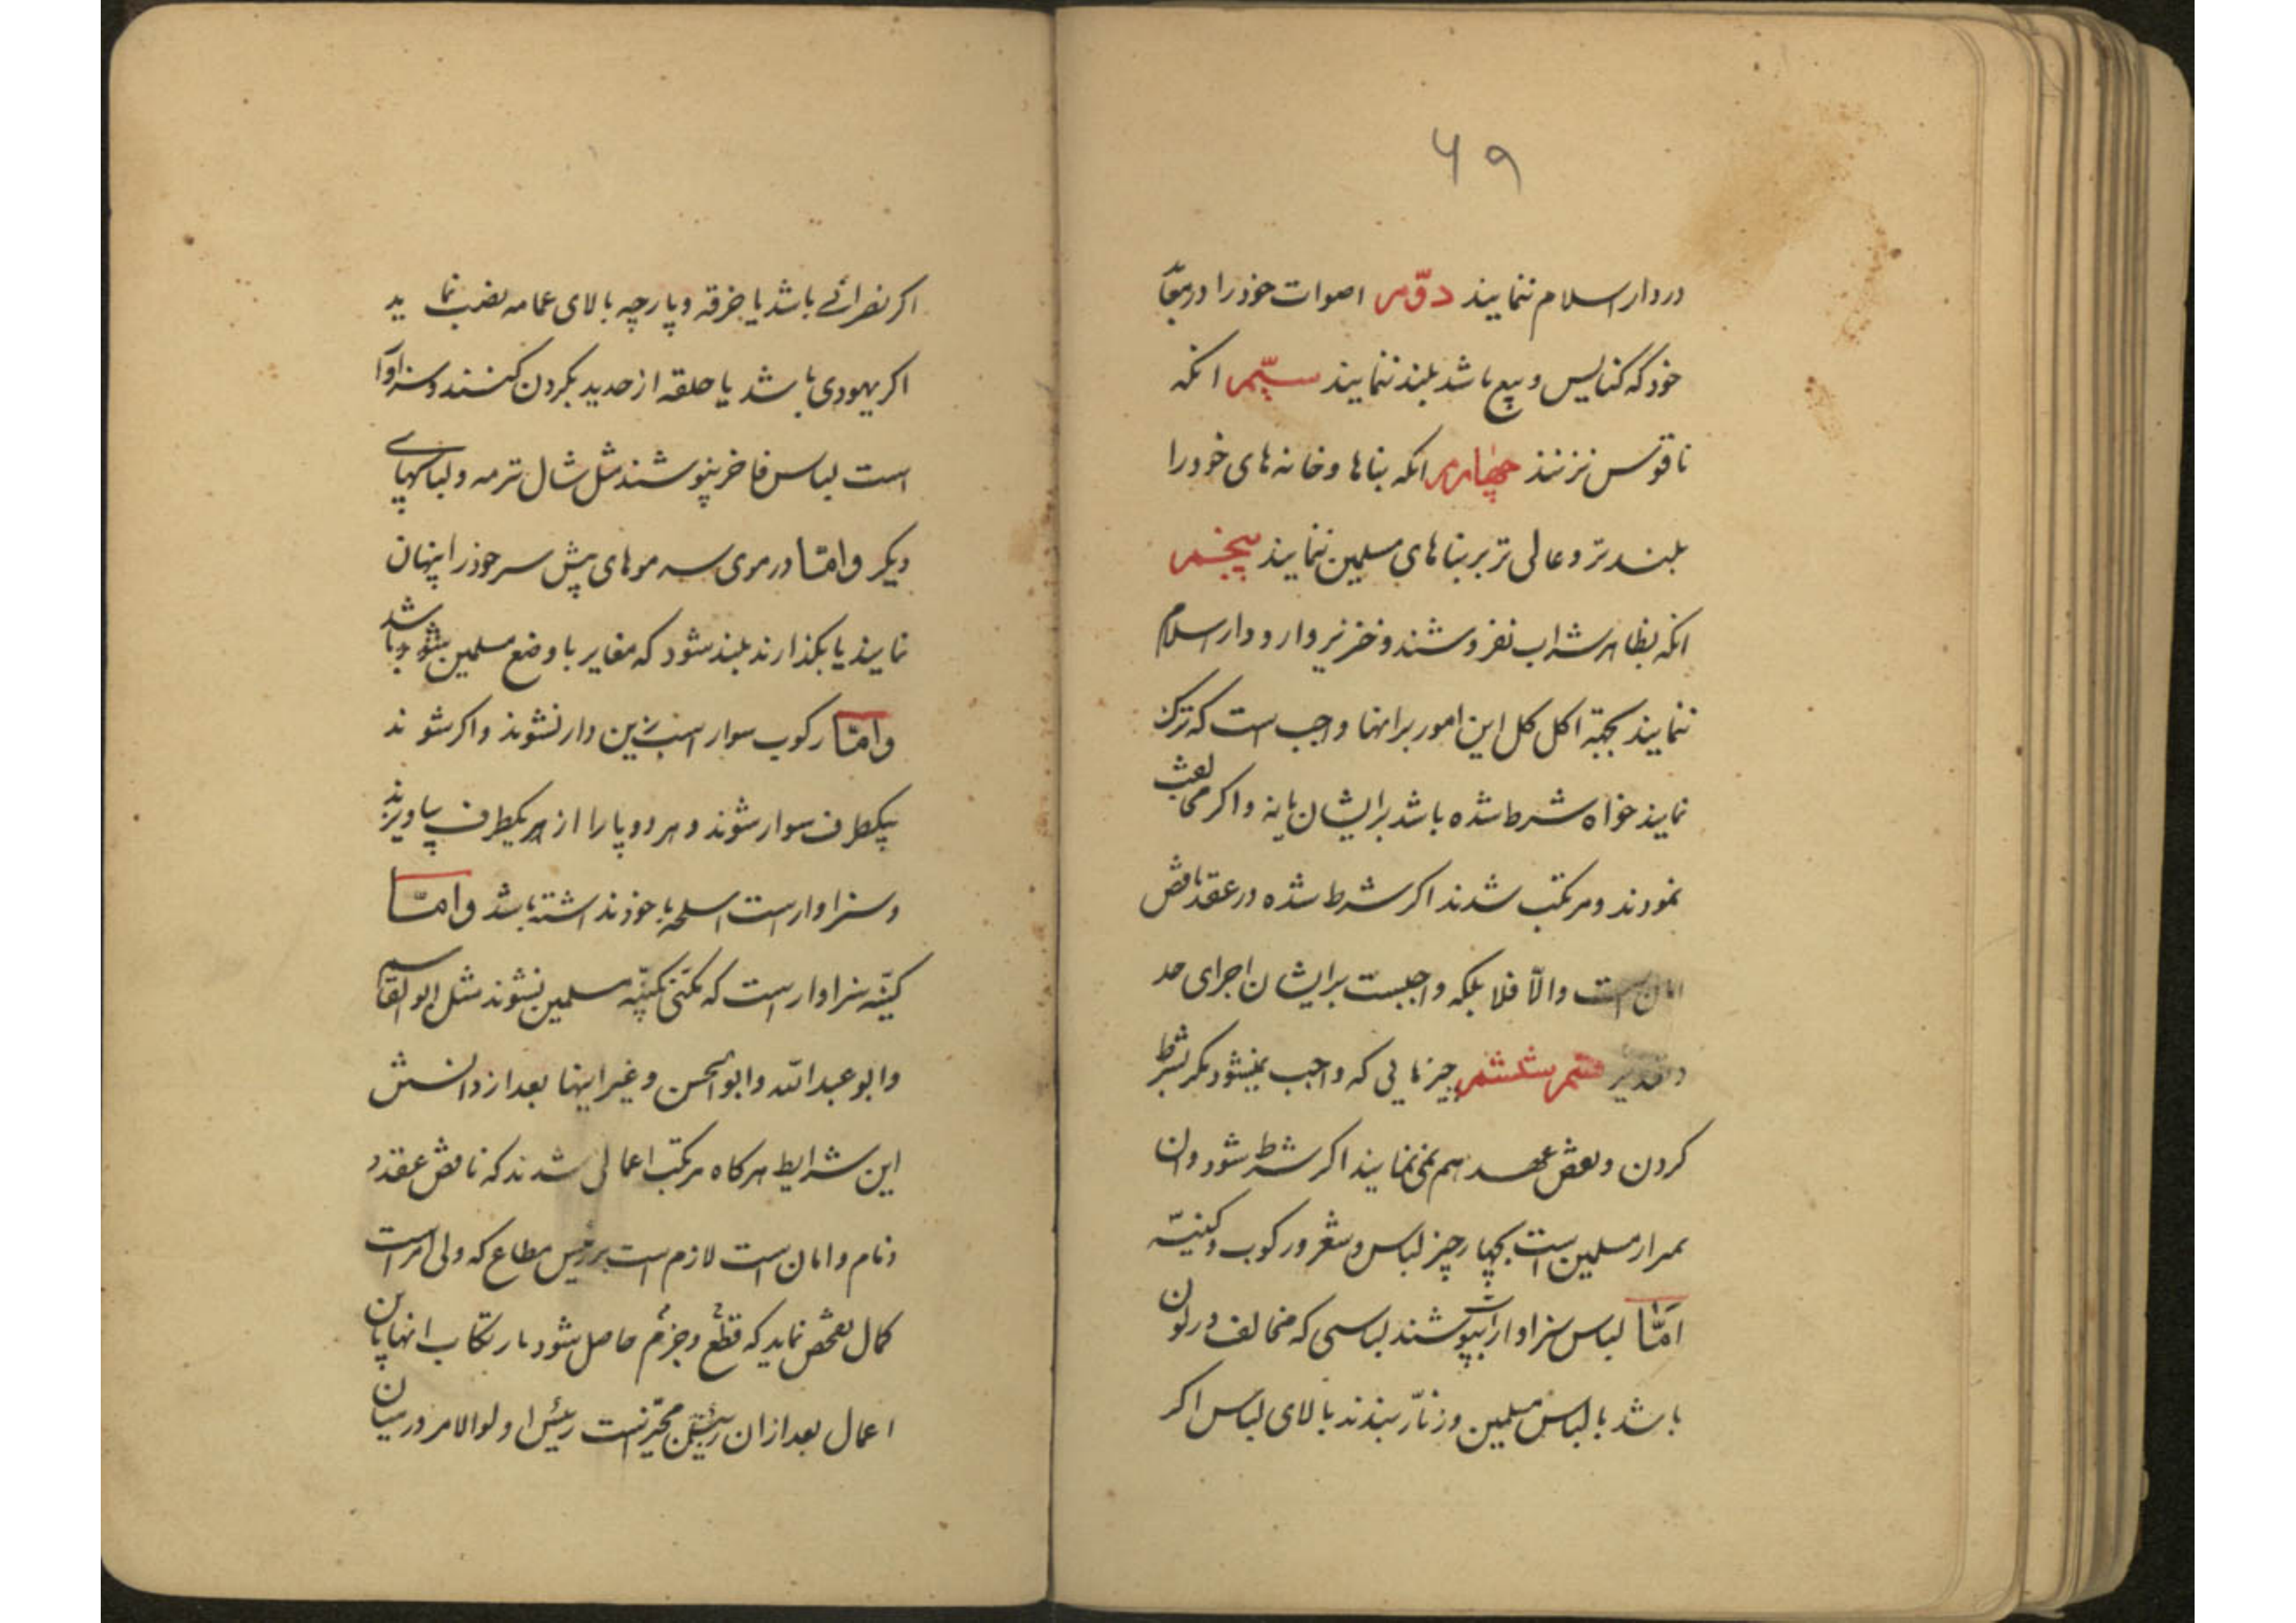 ۴۹
در دار اسلام ننمایند دوّم اصوات خود را در معابد
خود که کنایس و بیع باشد بلند ننمایند سیّم انکه
ناقوس نزنند چهارم انکه بناها و خانه های خود را
بلند تر و عالی تر بر بناهای مسلمین ننمایند پنجم
انکه بظاهر شراب نفروشند و خنزیر وارد دار اسلام
ننمایند بجهة اکل کل این امور بر انها واجب است که ترک
نمایند خواه شرط شده باشد بر ایشان یا نه و اکر مخالفت
نمودند و مرتکب شدند اکر شرط شده در عقد ناقض
امان است والّا فلا بلکه واجبست بر ایشان اجرای حد
قسم ششم چیزهایی که واجب نمیشود مکر بشرط
کردن و نقض عهد هم نمی نمایند اکر شرط شود وان
مسلمین است بچهار چیز لباس و شعر و رکوب و کنیّه
امّا لباس سزاوار است بپوشند لباسی که مخالف در لون
باشد با لباس مسلمین و زنّار ببندند بالای لباس اکر
اکر نصرانی باشد یا خرقه و پارچه بالای عمامه نصب نماید
اکر یهودی باشد یا حلقه از حدید بکردن کنند و سزاوار
است لباس فاخر نپوشند مثل شال ترمه و لباسهای
دیکر و امّا در موی سر موهای پیش سر خود را پنهان
نمایند یا بکذارند بلند شود که مغایر با وضع مسلمین باشد
و امّا رکوب سوار اسب زین دار نشوند و اکر شوند
بیکطرف سوار شوند و هر دو پا را از یکطرف بیاویزند
و سزاوار است اسلحه با خود نداشته باشد و امّا
کنیّه سزاوار است که مکنّی بکنیّه مسلمین نشوند مثل ابو القاسم
و ابو عبد الله و ابو الحسن و غیر اینها بعد از دانستن
این شرایط هرکاه مرتکب اعمالی شدند که ناقض عقد و
ذمام و امان است لازم است بر رئیس مطاع که ولی امر است
کمال تفحص نماید که قطع و جزم حاصل شود بارتکاب انها باین
اعمال بعد از ان رئیس اولوا الامر در میان